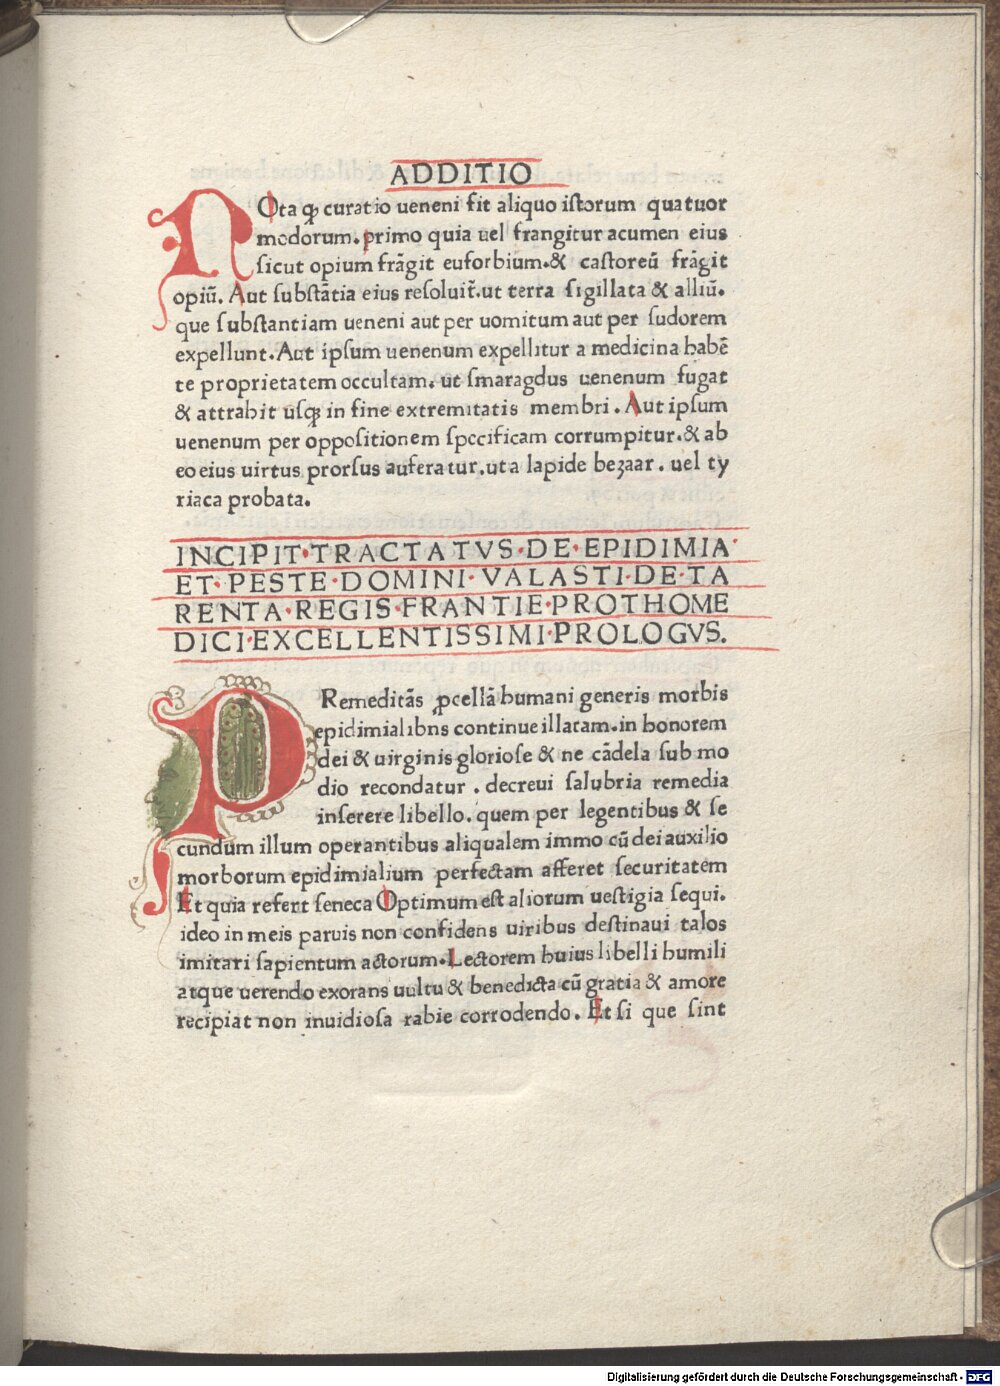 ADDITIO
NOta ꝙ curatio ueneni fit aliquo iſtorum quatuor
modorum. primo quia uel frangitur acumen eius
ſicut opium frãgit euforbium. & caſtoreũ frãgit
opiũ. Aut ſubſtãtia eius reſoluit̃. ut terra ſigillata & alliũ.
que ſubſtantiam ueneni aut per uomitum aut per ſudorem
expellunt. Aut ipſum uenenum expellitur a medicina habẽ
te proprietatem occultam. ut ſmaragdus uenenum fugat
& attrahit uſqꝫ in fine extremitatis membri. Aut ipſum
uenenum per oppoſitionem ſpecificam corrumpitur. & ab
eo eius uirtus prorſus auferatur. ut a lapide beʒaar. uel ty
riaca probata.
INCIPIT·TRACTATVS·DE·EPIDIMIA·
ET·PESTE·DOMINI·VALASTI·DE·TA
RENTA·REGIS·FRANTIE·PROTHOME
DICI·EXCELLENTISSIMI·PROLOGVS.
PRemeditãs ꝓcellã humani generis morbis
epidimialibns continue illatam. in honorem
dei & uirginis glorioſe & ne cãdela ſub mo
dio recondatur. decreui ſalubria remedia
inſerere libello. quem per legentibus & ſe
cundum illum operantibus aliqualem immo cũ dei auxilio
morborum epidimialium perfectam afferet ſecuritatem
Et quia refert ſeneca Optimum eſt aliorum ueſtigia ſequi.
ideo in meis paruis non confidens uiribus deſtinaui talos
imitari ſapientum actorum. Lectorem huius libelli humili
atque uerendo exorans uultu & benedicta cũ gratia & amore
recipiat non inuidioſa rabie corrodendo. Et ſi que ſint
Digitalisierung gefördert durch die Deutsche Forschungsgemeinschaft - DFG